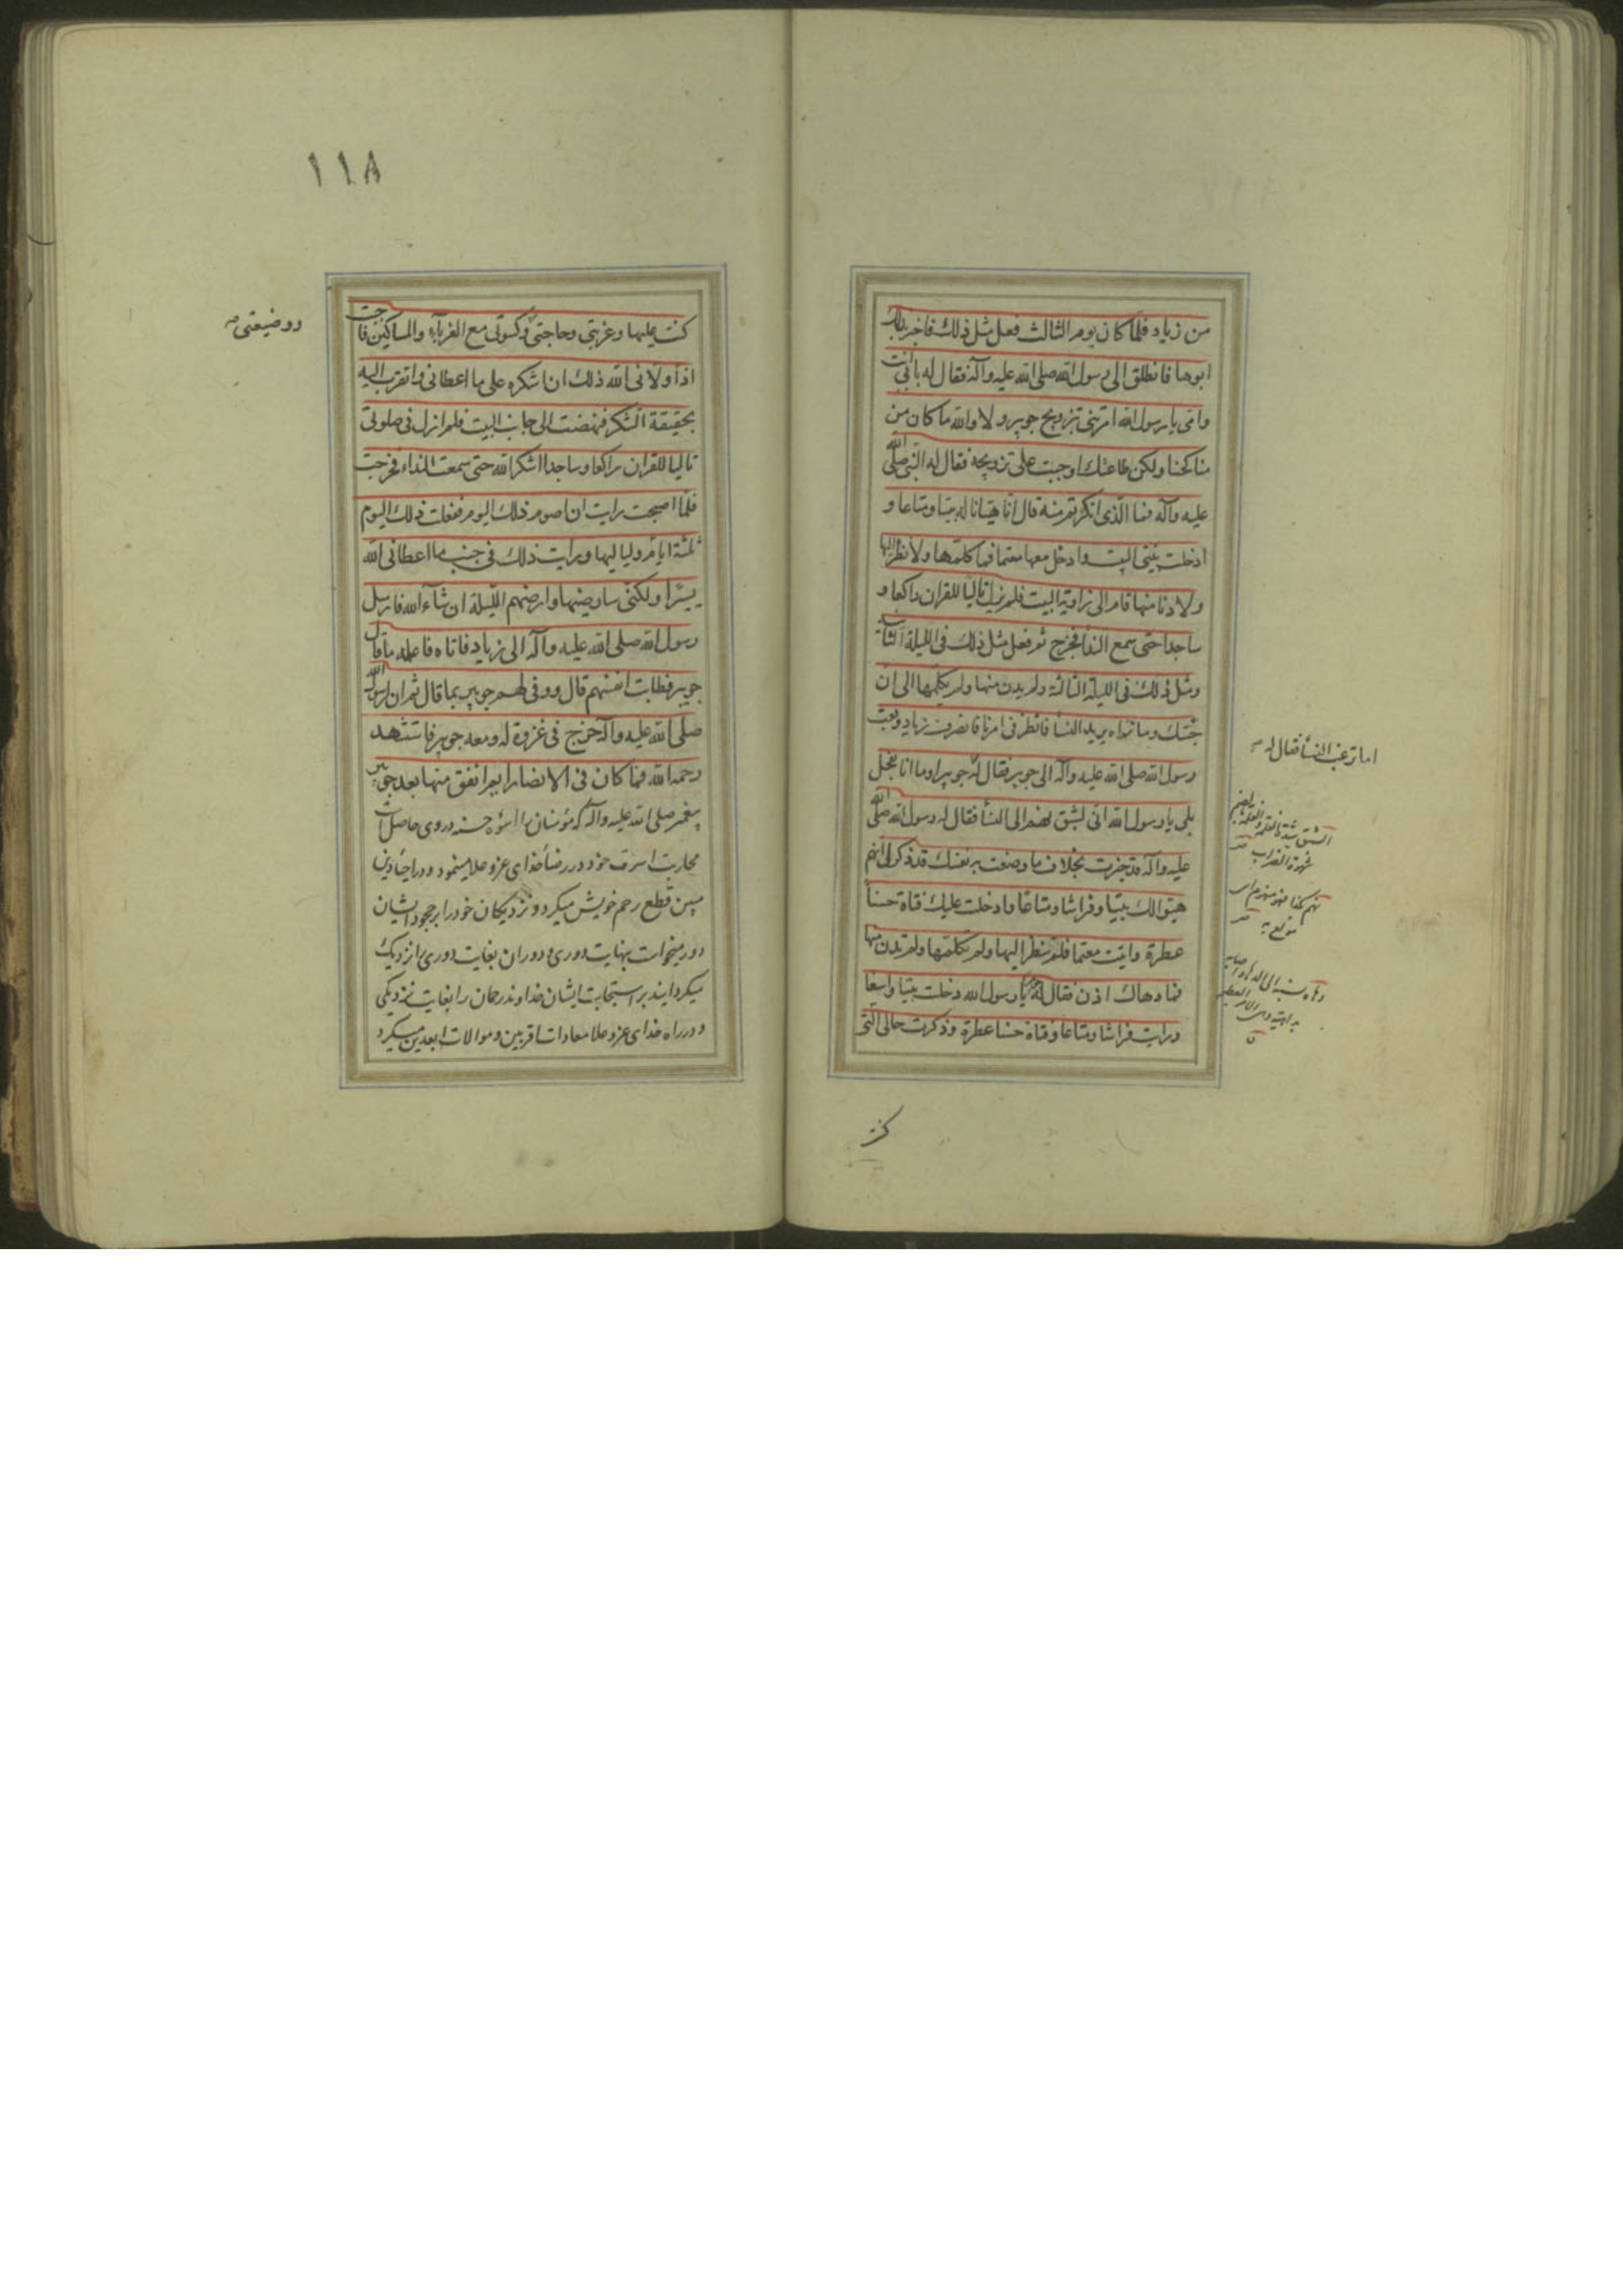 من زياد فلما كان يوم الثالث فعل مثل ذلك فاخبر بذلك
ابوها فانطلق الى رسول الله صلى الله عليه وآله فقال له بابى انت
وامى يا رسول الله امرتنى بتزويج جويبر ولا والله ما كان من
مناكحنا ولكن طاعتك اوجبت على تزويجه فقال له النبى صلى الله
عليه وآله فما الذى انكرتم منه قال انا هيّانا له بيتا ومتاعا و
ادخلت بنيتى البيت وادخل معها معتما فما كلمها ولا نظر اليها
ولا دنا منها قام الى زاوية البيت فلم يزل تاليا للقران راكعا و
ساجدا حتى سمع النداء فخرج ثم فعل مثل ذلك فى الليلة الثانية
ومثل ذلك فى الليلة الثالثة ولم يدن منها ولم يكلمها الى ان
جئتك وما نراه يريد النسآ فانظر فى امرنا فانصرف زياد وبعث
رسول الله صلى الله عليه وآله الى جويبر فقال له جويبر اوما انا بفحل
بلى يا رسول الله انى لشبق نهم الى النسآ فقال له رسول الله صلى الله
عليه وآله قد خبرت بخلاف ما وصفت به نفسك قد ذكر لى انهم
هيؤا لك بيتا وفراشا ومتاعا وادخلت عليك فتاة حسنآ
عطرة واتيت معتما فلم تنظر اليها ولم تكلمها ولم تدن منها
فما دهاك اذن فقال له جويبر يا رسول الله دخلت بيتا واسعا
ورايت فراشا ومتاعا وفتاة حسنا عطرة وذكرت حالى التى
اما تقرب النسآ فقال له صح
الشبق شدة الغلمة
كنت
١١٨
كنت عليها وغربتى وحاجتى وكسوتى مع الغربآء والمساكين فاحببت
اذ اولانى الله ذلك ان اشكره على ما اعطانى واتقرب اليه
بحقيقة الشكر فنهضت الى جانب البيت فلم ازل فى صلوتى
تاليا للقران راكعا وساجدا اشكر الله حتى سمعت النداء فخرجت
فلما اصبحت رايت ان اصوم ذلك اليوم ففعلت ذلك اليوم
ثلثة ايام ولياليها ورايت ذلك فى جنب ما اعطانى الله
يسيرا ولكنى سارضيها وارضيهم الليلة ان شآء الله فارسل
رسول الله صلى الله عليه وآله الى زياد فاتاه فاعلمه ما قال
جويبر فطابت انفسهم قال ووفى لهم جويبر بما قال ثم ان رسول الله
صلى الله عليه وآله خرج فى غزوة له ومعه جويبر فاستشهد
رحمه الله فما كان فى الانصار ايم انفق منها بعد جويبر
پيغمبر صلى الله عليه وآله كه مؤمنان را اسوه حسنه در وى حاصل است
محاربت اسرت خود در رضآ خداى عز و علا مينمود و در احيآ دين
مبين قطع رحم خويش ميكرد و نزديكان خود را بر جحود ايشان
دور ميخواست بنهايت دورى و دوران بغايت دورى را نزديك
ميكردانيد بر استجابت ايشان خداوند رحمان را بغايت نزديكى
و در راه خداى عز و علا معادات اقربين و موالات ابعدين ميكرد
وضيعتى صح